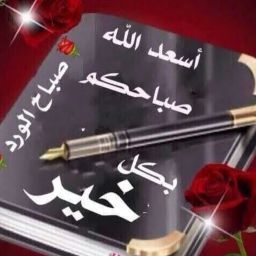 أسعد الله
صباحكم
بكل
خير
صباح الورد